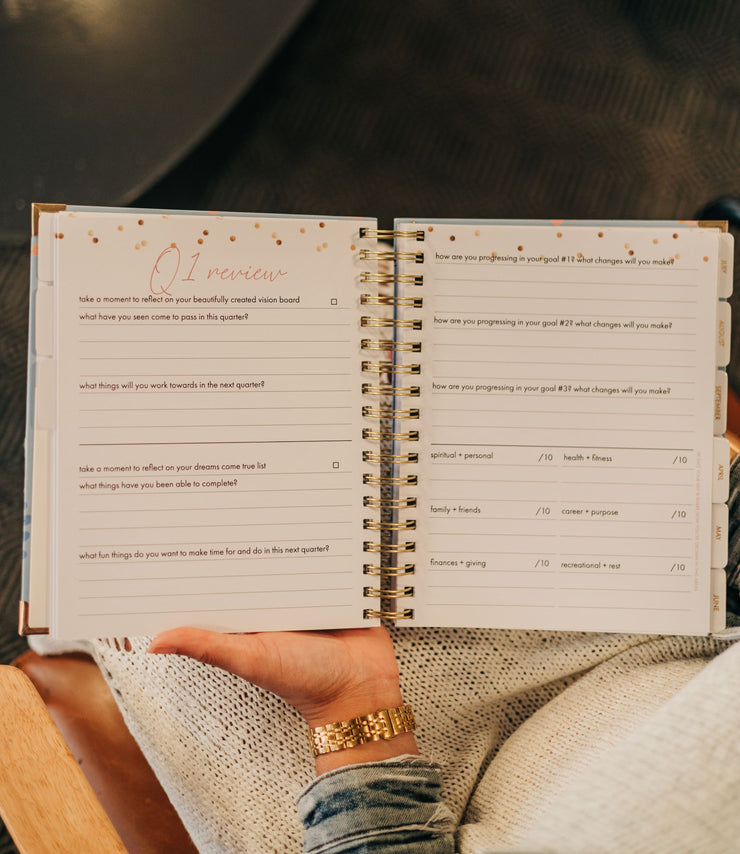 Q1 review
take a moment to reflect on your beautifully created vision board
what have you seen come to pass in this quarter?
what things will you work towards in the next quarter?
take a moment to reflect on your dreams come true list
what things have you been able to complete?
what fun things do you want to make time for and do in this next quarter?
how are you progressing in your goal #1? what changes will you make?
how are you progressing in your goal #2? what changes will you make?
how are you progressing in your goal #3? what changes will you make?
spiritual + personal /10 health + fitness /10
family + friends /10 career + purpose /10
finances + giving /10 recreational + rest /10
JULY
AUGUST
SEPTEMBER
APRIL
MAY
JUNE